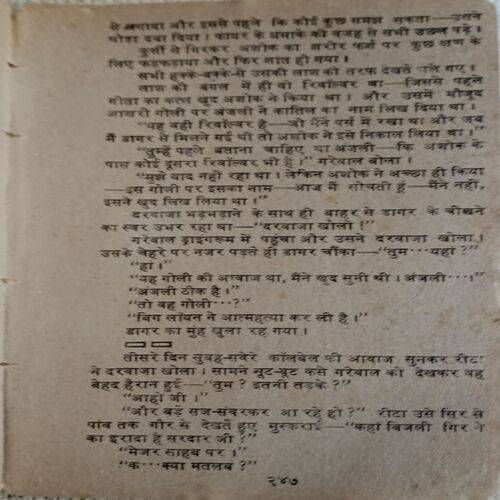 से लगाया और इससे पहले कि कोई कुछ समझ सकता—उसने
घोड़ा दबा दिया। फायर के धमाके की वजह से सभी उछल पड़े।
कुर्सी से गिरकर अशोक का शरीर फर्श पर कुछ क्षण के
लिए फड़फड़ाया और फिर शांत हो गया।
सभी हक्के-बक्के-से उसकी लाश की तरफ देखते चले गए।
लाश की बगल में ही वो रिवॉल्वर था—जिससे पहले
गीता का कत्ल खुद अशोक ने किया था। और उसमें मौजूद
आखरी गोली पर अंजली ने कातिल का नाम लिख दिया था।
"यह वही रिवॉल्वर है—जो मैंने पर्स में रखा था और जब
मैं डागर से मिलने गई थी तो अशोक ने इसे निकाल लिया था।"
"तुम्हें पहले बताना चाहिए था अंजली—कि अशोक के
पास कोई दूसरा रिवॉल्वर भी है।" गरेवाल बोला।
"मुझे याद नहीं रहा था। लेकिन अशोक ने अच्छा ही किया
—इस गोली पर इसका नाम—आज मैं सोचती हूं—मैंने नहीं,
इसने खुद लिख लिया था।"
दरवाजा भड़भड़ाने के साथ ही बाहर से डागर के चीखने
का स्वर उभर रहा था—"दरवाजा खोलो!"
गरेवाल ड्राइंगरूम में पहुंचा और उसने दरवाजा खोला।
उसके चेहरे पर नजर पड़ते ही डागर चौंका—"तुम···यहां?"
"हां।"
"यह गोली की आवाज था, मैंने खुद सुनी थी। अंजली···।"
"अंजली ठीक है।"
"तो वह गोली···?"
"बिग लॉयन ने आत्महत्या कर ली है।"
डागर का मुंह खुला रह गया।
तीसरे दिन सुबह-सवेरे कॉलबेल की आवाज सुनकर रीटा
ने दरवाजा खोला। सामने सूट-बूट कसे गरेवाल को देखकर वह
बेहद हैरान हुई—"तुम? इतनी तड़के?"
"आहो जी।"
"और बड़े सज-संवरकर आ रहे हो?" रीटा उसे सिर से
पांव तक गौर से देखते हुए मुस्कराई—"कहां बिजली गिराने
का इरादा है सरदार जी?"
"मेजर साहब पर।"
"क···क्या मतलब?"
२४७